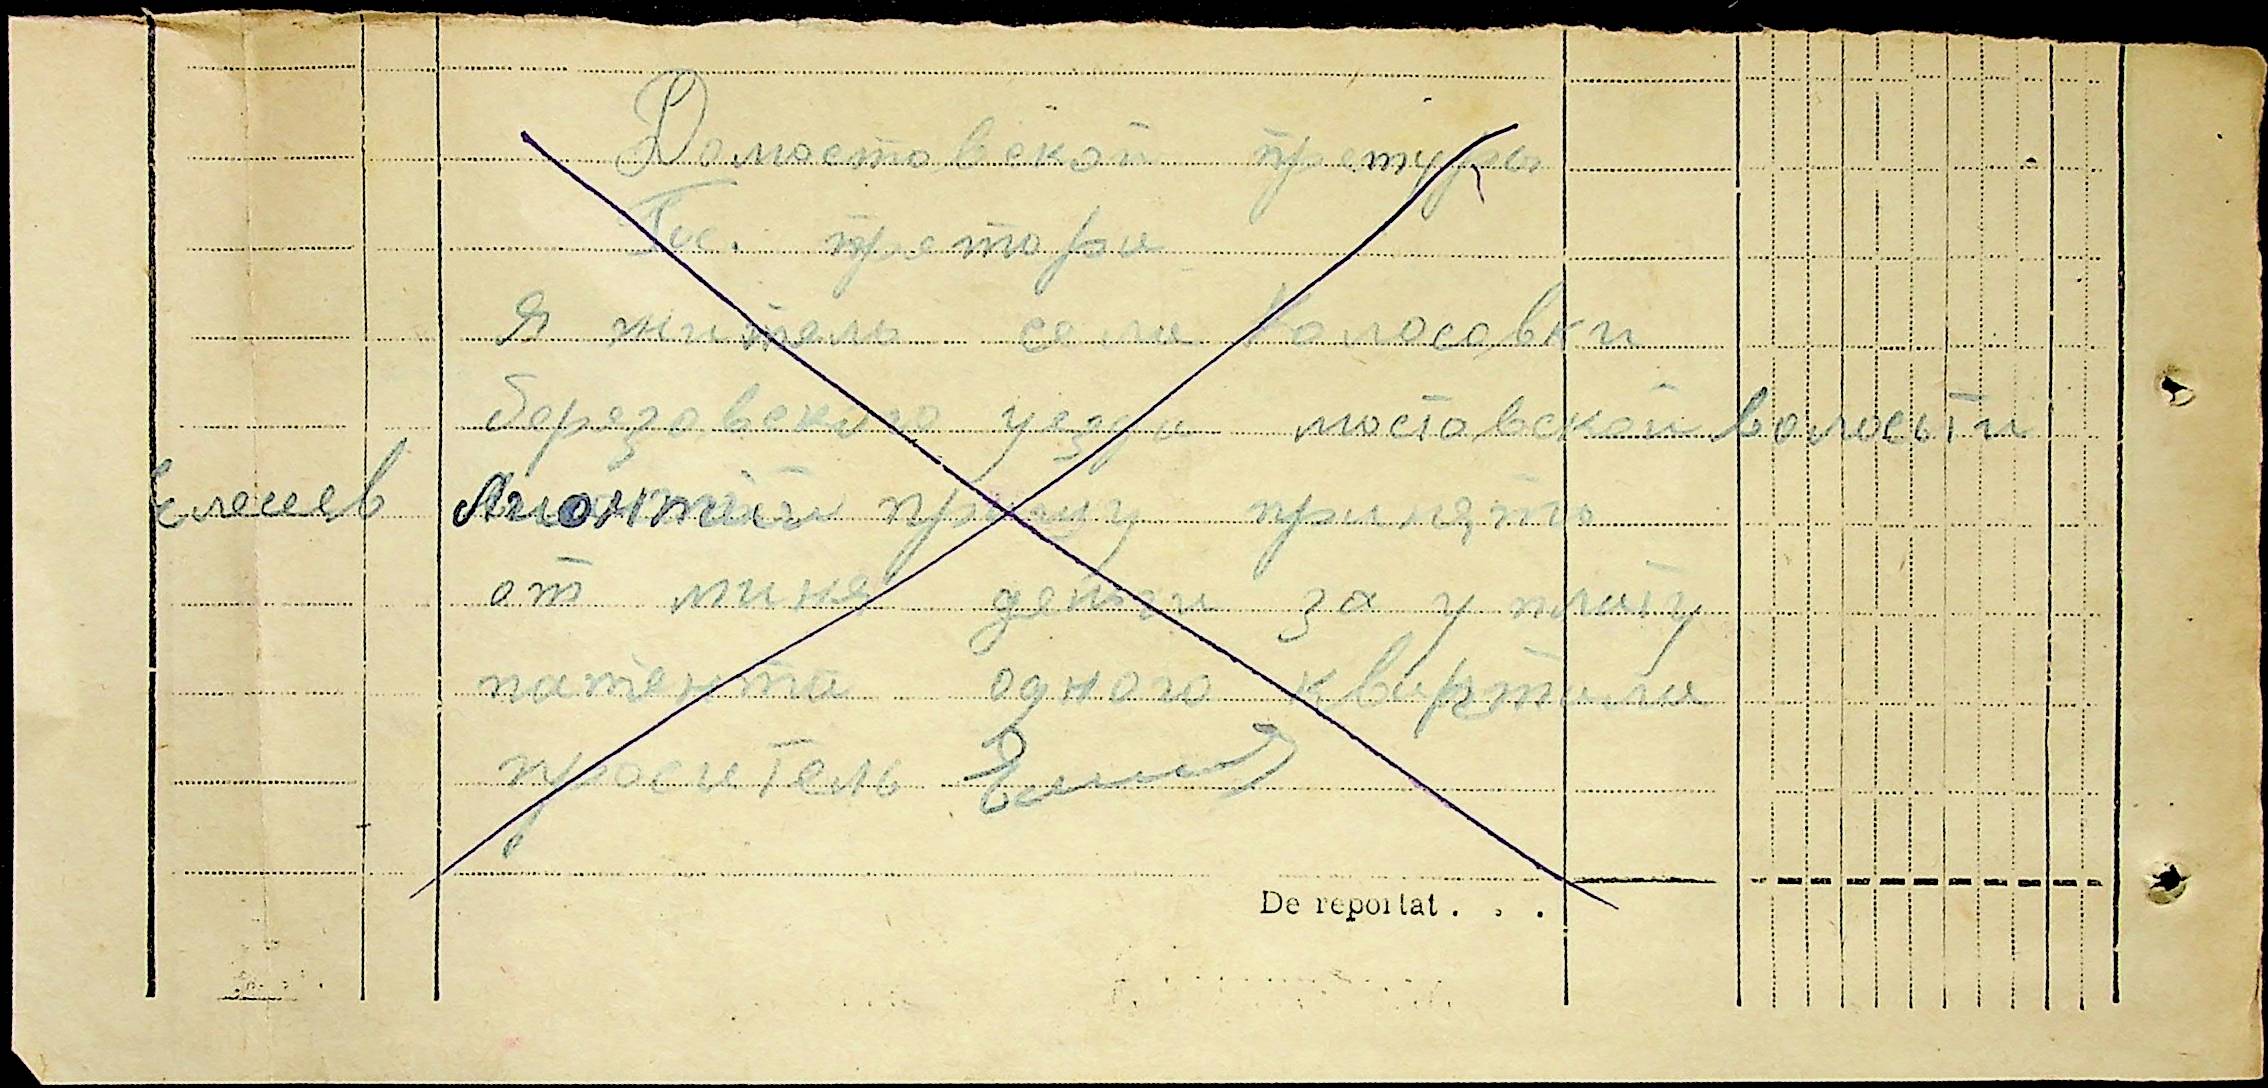 Домостовской претуры
Гос. претора
Я житель села Колосовки
березовского уезда мостовской волосьти
Елесеев Лионтий прошу принять
от миня деньги за уплату
патента одного квартала
проситель
De reportat . . .